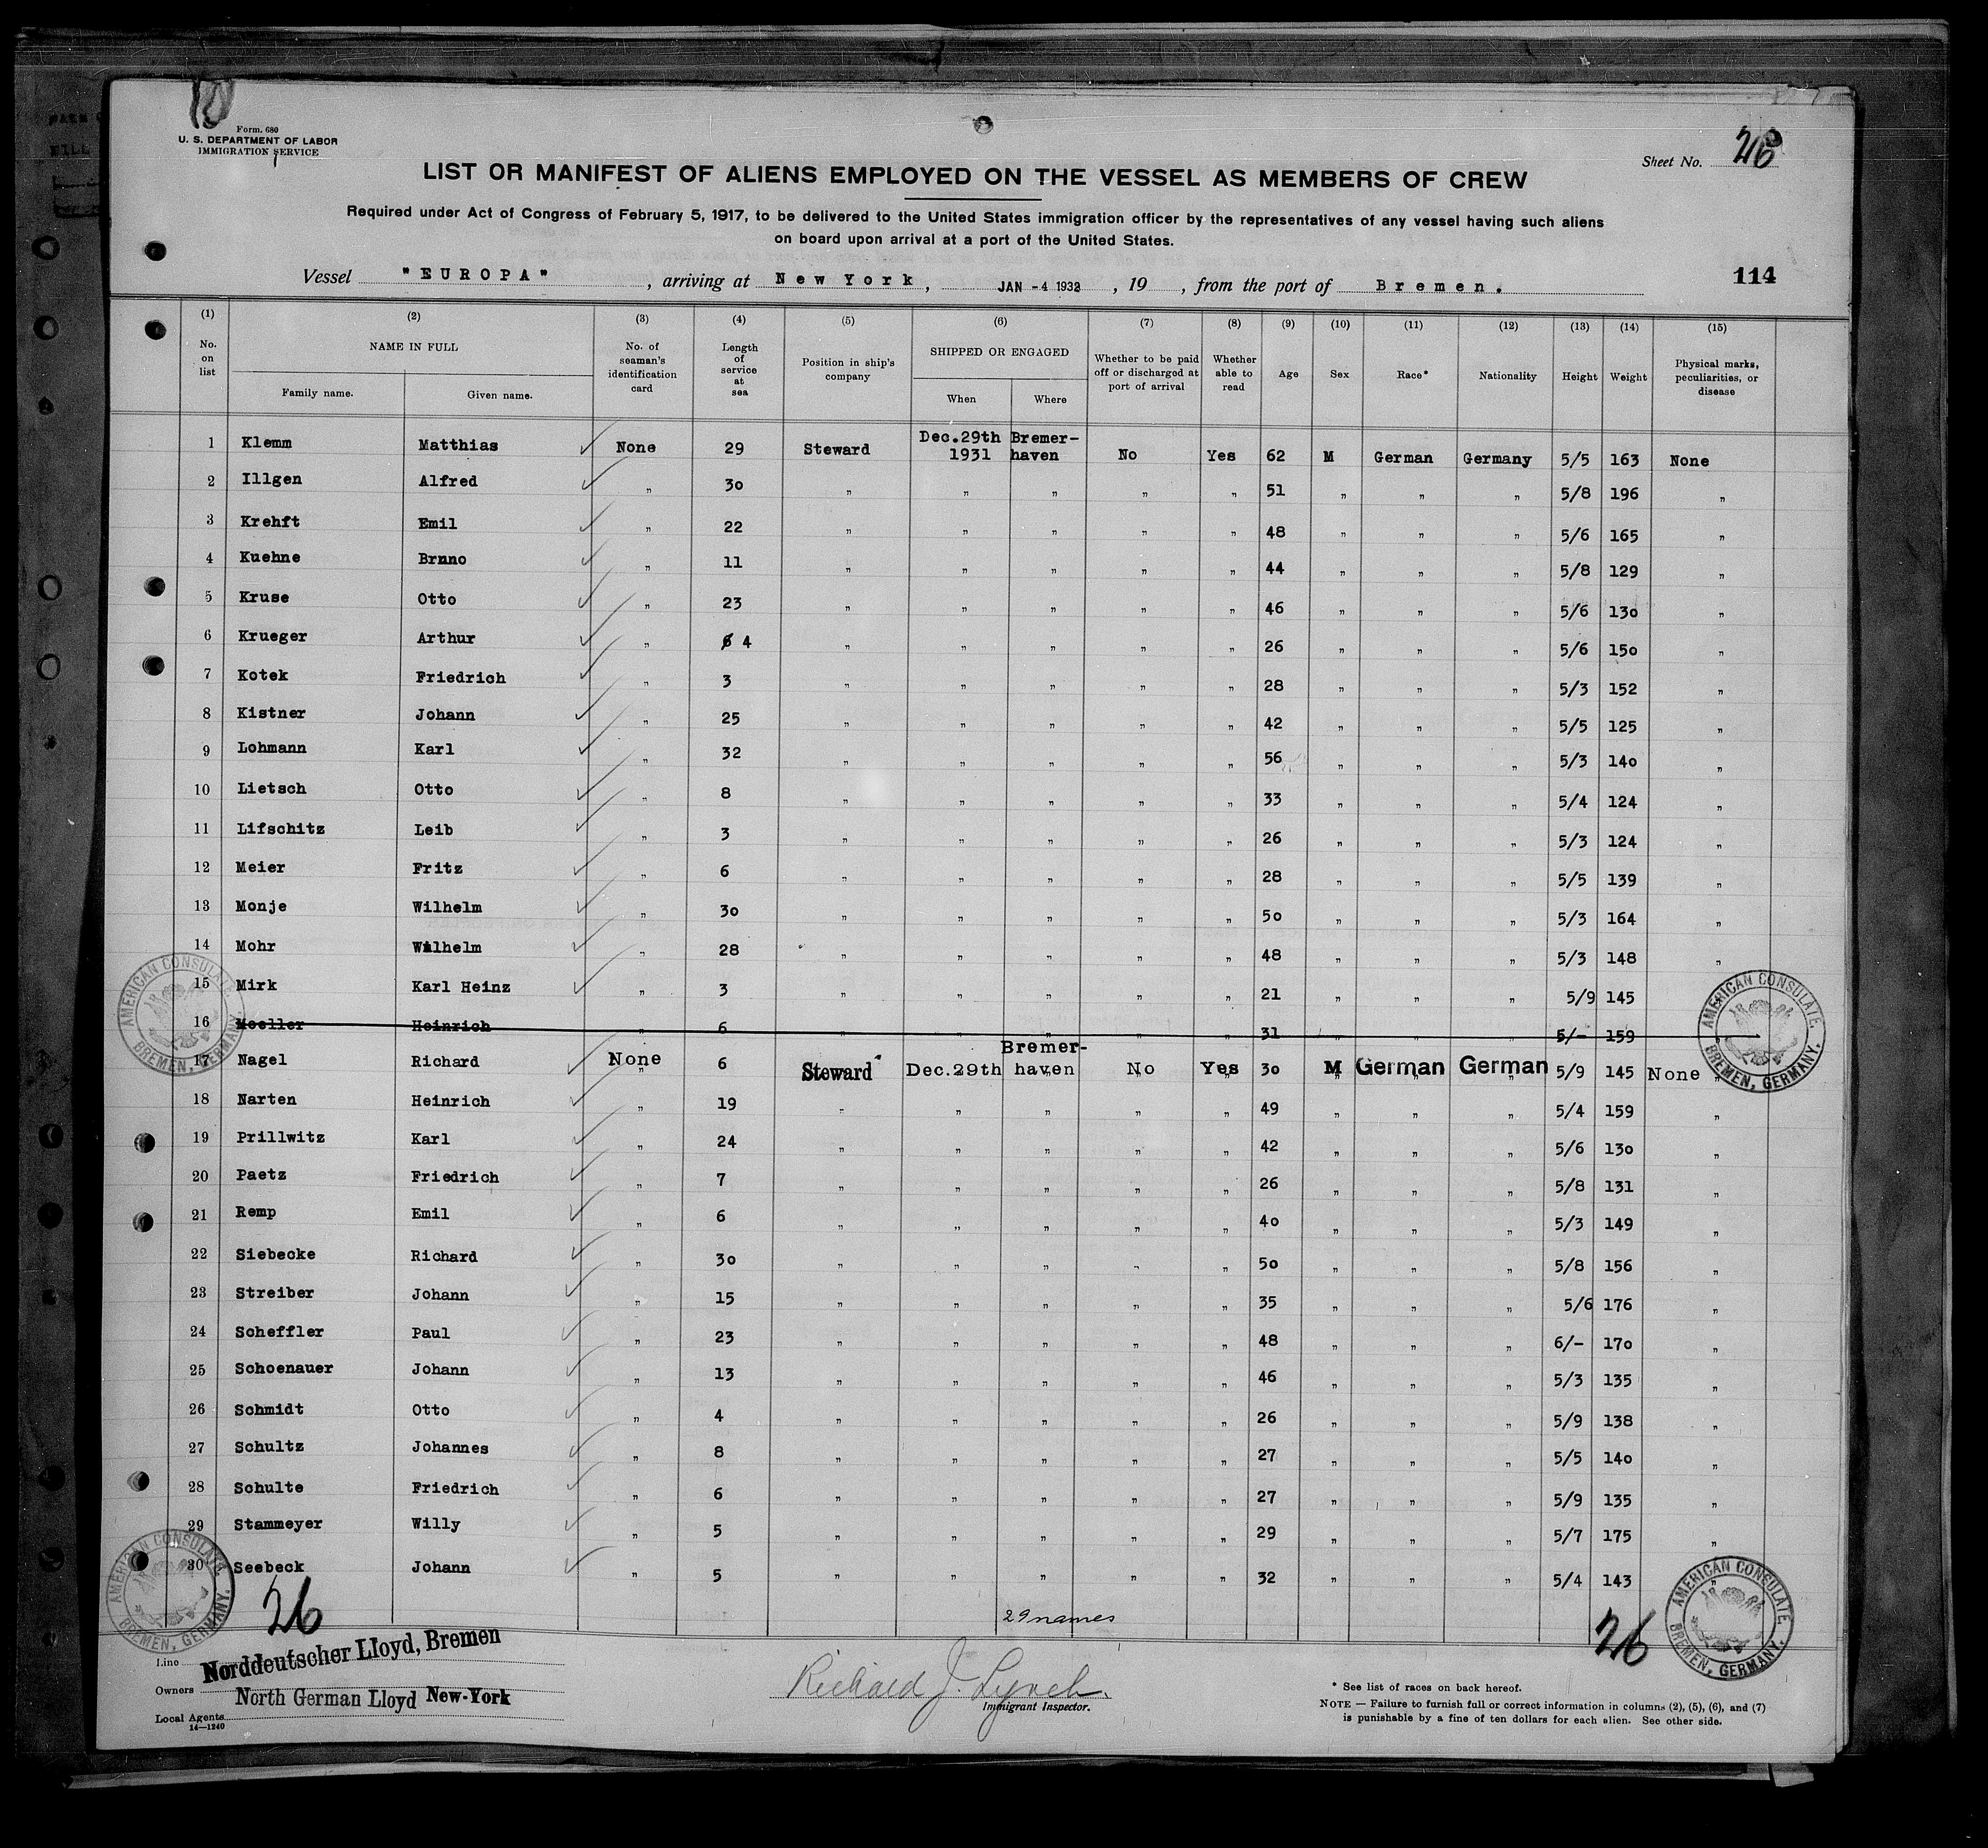 Form. 680
U. S. DEPARTMENT OF LABOR
IMMIGRATION SERVICE
Sheet No. 26
LIST OR MANIFEST OF ALIENS EMPLOYED ON THE VESSEL AS MEMBERS OF CREW
Required under Act of Congress of February 5, 1917, to be delivered to the United States immigration officer by the representatives of any vessel having such aliens
on board upon arrival at a port of the United States.
Vessel "EUROPA", arriving at New York, JAN -4 1932, 19 , from the port of Bremen.
114
(1) (2) (3) (4) (5) (6) (7) (8) (9) (10) (11) (12) (13) (14) (15)
No. on list NAME IN FULL Family name. Given name. No. of seaman's identification card Length of service at sea Position in ship's company SHIPPED OR ENGAGED When Where Whether to be paid off or discharged at port of arrival Whether able to read Age Sex Race* Nationality Height Weight Physical marks, peculiarities, or disease
1 Klemm Matthias None 29 Steward Dec.29th 1931 Bremer-haven No Yes 62 M German Germany 5/5 163 None
2 Illgen Alfred " 30 " " " " " 51 " " " 5/8 196 "
3 Krehft Emil " 22 " " " " " 48 " " " 5/6 165 "
4 Kuehne Brnno " 11 " " " " " 44 " " " 5/8 129 "
5 Kruse Otto " 23 " " " " " 46 " " " 5/6 130 "
6 Krueger Arthur " 6 4 " " " " " 26 " " " 5/6 150 "
7 Kotek Friedrich " 3 " " " " " 28 " " " 5/3 152 "
8 Kistner Johann " 25 " " " " " 42 " " " 5/5 125 "
9 Lohmann Karl " 32 " " " " " 56 " " " 5/3 140 "
10 Lietsch Otto " 8 " " " " " 33 " " " 5/4 124 "
11 Lifschitz Leib " 3 " " " " " 26 " " " 5/3 124 "
12 Meier Fritz " 6 " " " " " 28 " " " 5/5 139 "
13 Monje Wilhelm " 30 " " " " " 50 " " " 5/3 164 "
14 Mohr Wilhelm " 28 " " " " " 48 " " " 5/3 148 "
15 Mirk Karl Heinz " 3 " " " " " 21 " " " 5/9 145 "
16 Moeller Heinrich " 6 " " " " " 31 " " " 5/- 159
17 Nagel Richard None 6 Steward Dec.29th Bremer-haven No Yes 30 M German German 5/9 145 None "
18 Narten Heinrich " 19 " " " " " 49 " " " 5/4 159 "
19 Prillwitz Karl " 24 " " " " " 42 " " " 5/6 130 "
20 Paetz Friedrich " 7 " " " " " 26 " " " 5/8 131 "
21 Remp Emil " 6 " " " " " 40 " " " 5/3 149 "
22 Siebecke Richard " 30 " " " " " 50 " " " 5/8 156 "
23 Streiber Johann " 15 " " " " " 35 " " " 5/6 176 "
24 Scheffler Paul " 23 " " " " " 48 " " " 6/- 170 "
25 Schoenauer Johann " 13 " " " " " 46 " " " 5/3 135 "
26 Schmidt Otto " 4 " " " " " 26 " " " 5/9 138 "
27 Schultz Johannes " 8 " " " " " 27 " " " 5/5 140 "
28 Schulte Friedrich " 6 " " " " " 27 " " " 5/9 135 "
29 Stammeyer Willy " 5 " " " " " 29 " " " 5/7 175 "
30 Seebeck Johann " 5 " " " " " 32 " " " 5/4 143 "
AMERICAN CONSULATE. BREMEN, GERMANY.
AMERICAN CONSULATE. BREMEN, GERMANY.
AMERICAN CONSULATE. BREMEN, GERMANY.
AMERICAN CONSULATE. BREMEN, GERMANY.
26
29 names
26
Line Norddeutscher Lloyd, Bremen
Owners North German Lloyd New-York
Local Agents
14-1240
Richard J. Lynch.
Immigrant Inspector.
* See list of races on back hereof.
NOTE — Failure to furnish full or correct information in columns (2), (5), (6), and (7)
is punishable by a fine of ten dollars for each alien. See other side.